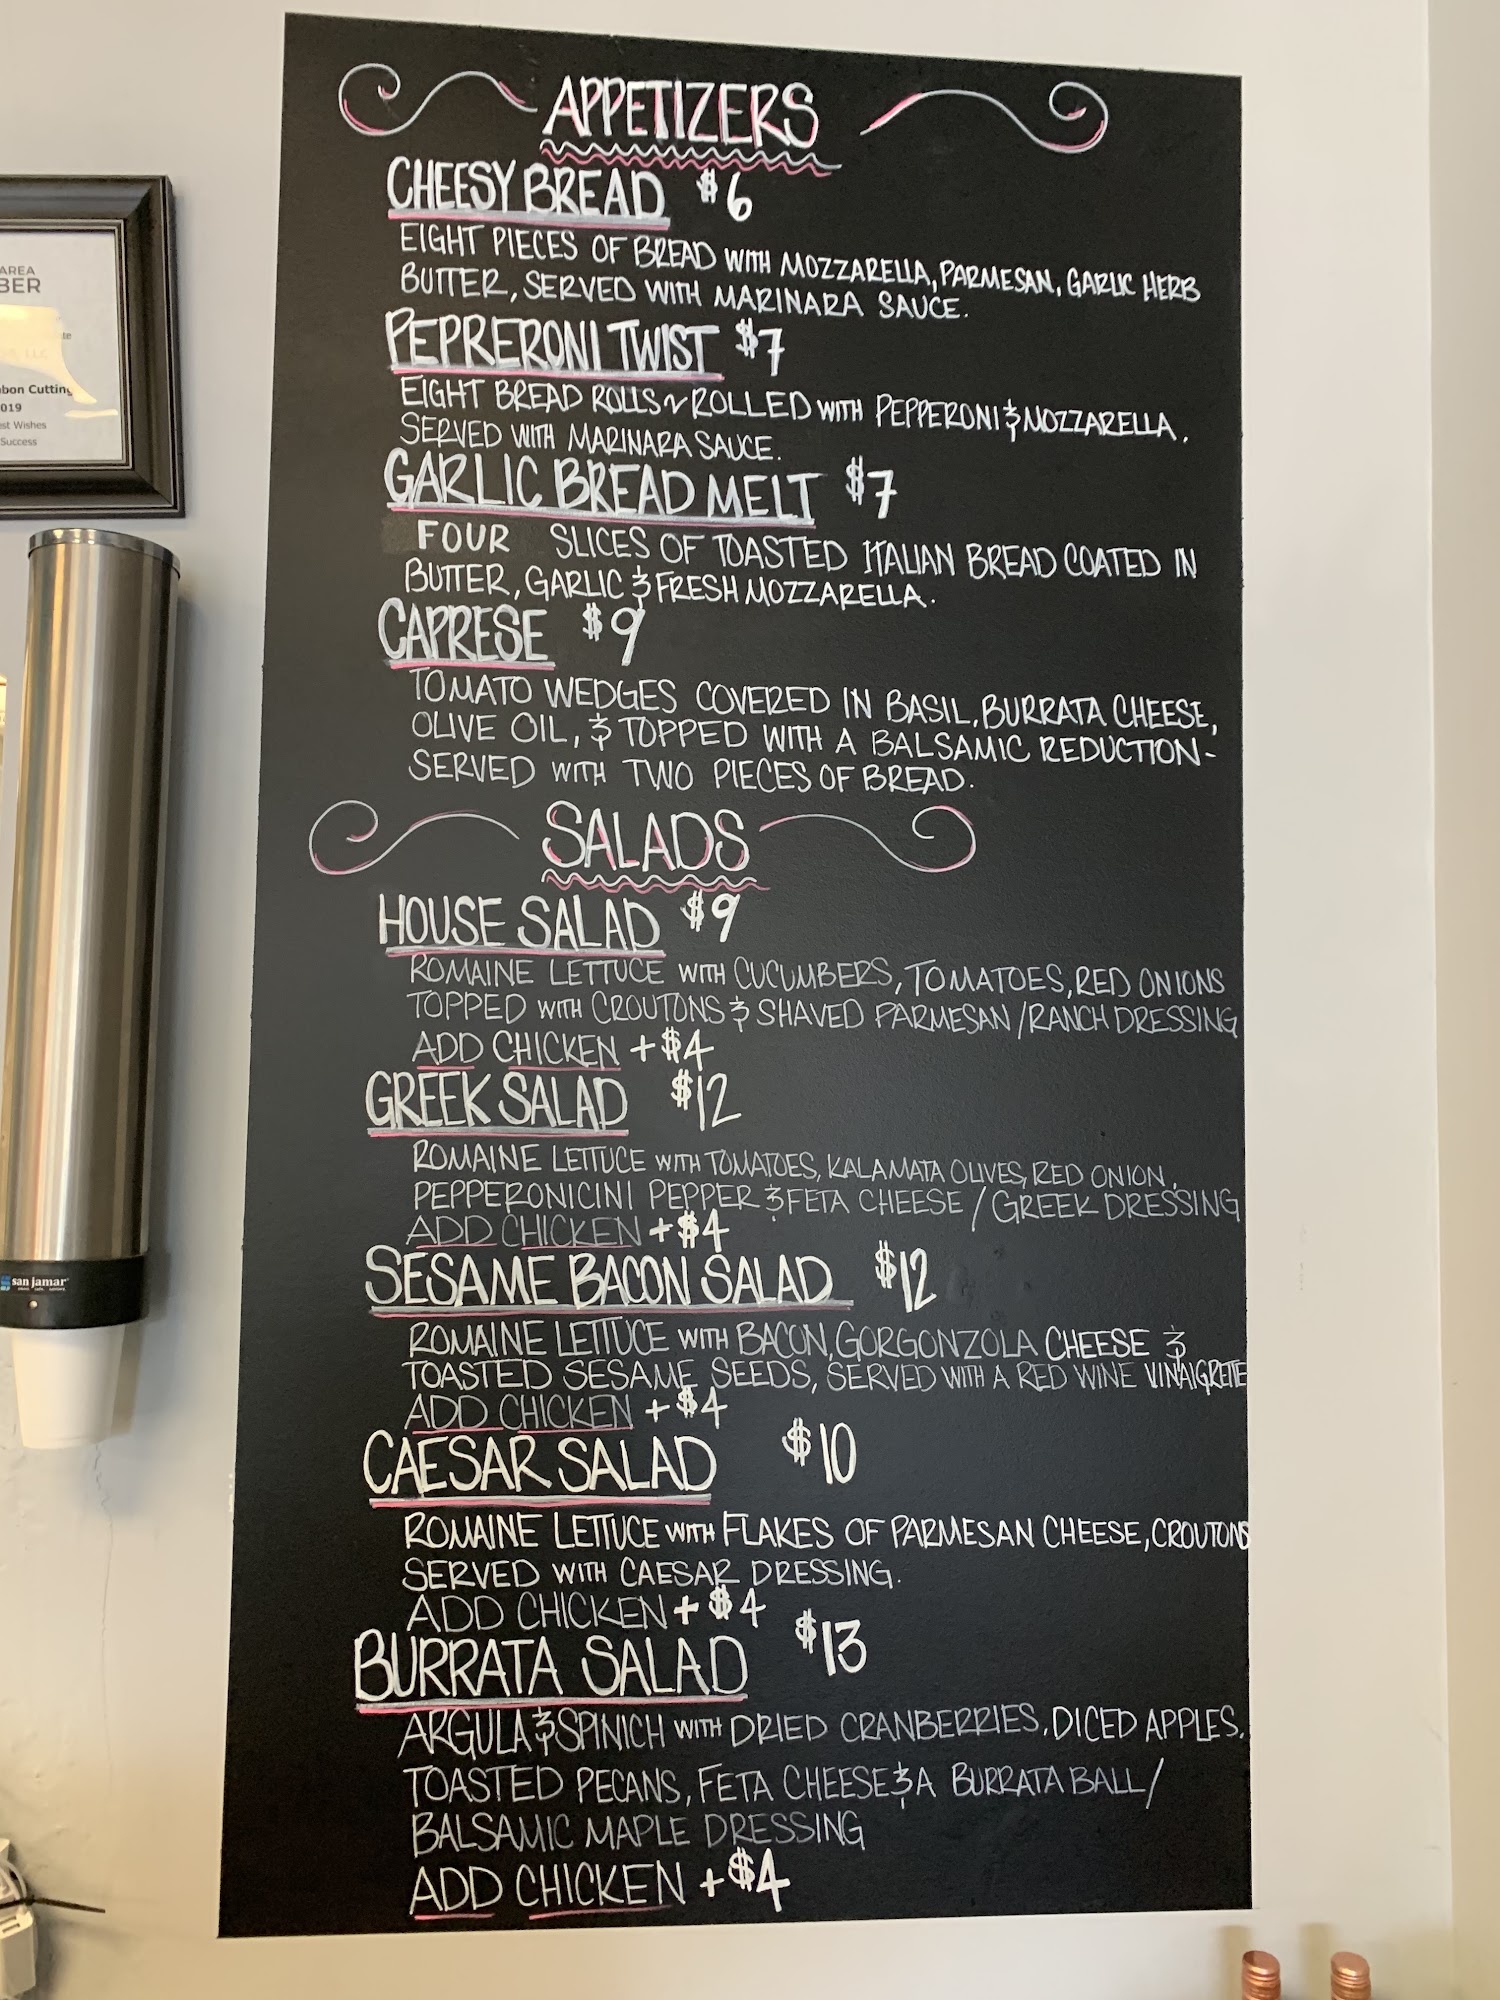 AREA
BER
te
LLC
bbon Cutting
2019
est Wishes
Success
APPETIZERS
CHEESY BREAD $6
EIGHT PIECES OF BREAD WITH MOZZARELLA, PARMESAN, GARLIC HERB
BUTTER, SERVED WITH MARINARA SAUCE.
PEPRERONI TWIST $7
EIGHT BREAD ROLLS ~ ROLLED WITH PEPPERONI & MOZZARELLA.
SERVED WITH MARINARA SAUCE.
GARLIC BREAD MELT $7
FOUR SLICES OF TOASTED ITALIAN BREAD COATED IN
BUTTER, GARLIC & FRESH MOZZARELLA.
CAPRESE $9
TOMATO WEDGES COVERED IN BASIL, BURRATA CHEESE,
OLIVE OIL, & TOPPED WITH A BALSAMIC REDUCTION-
SERVED WITH TWO PIECES OF BREAD.
SALADS
HOUSE SALAD $9
ROMAINE LETTUCE WITH CUCUMBERS, TOMATOES, RED ONIONS
TOPPED WITH CROUTONS & SHAVED PARMESAN / RANCH DRESSING
ADD CHICKEN +$4
GREEK SALAD $12
ROMAINE LETTUCE WITH TOMATOES, KALAMATA OLIVES, RED ONION,
PEPPERONICINI PEPPER & FETA CHEESE / GREEK DRESSING
ADD CHICKEN +$4
SESAME BACON SALAD $12
ROMAINE LETTUCE WITH BACON, GORGONZOLA CHEESE &
TOASTED SESAME SEEDS, SERVED WITH A RED WINE VINAIGRETTE
ADD CHICKEN +$4
CAESAR SALAD $10
ROMAINE LETTUCE WITH FLAKES OF PARMESAN CHEESE, CROUTONS
SERVED WITH CAESAR DRESSING.
ADD CHICKEN +$4
BURRATA SALAD $13
ARGULA & SPINICH WITH DRIED CRANBERRIES, DICED APPLES,
TOASTED PECANS, FETA CHEESE & A BURRATA BALL /
BALSAMIC MAPLE DRESSING
ADD CHICKEN +$4
san jamar